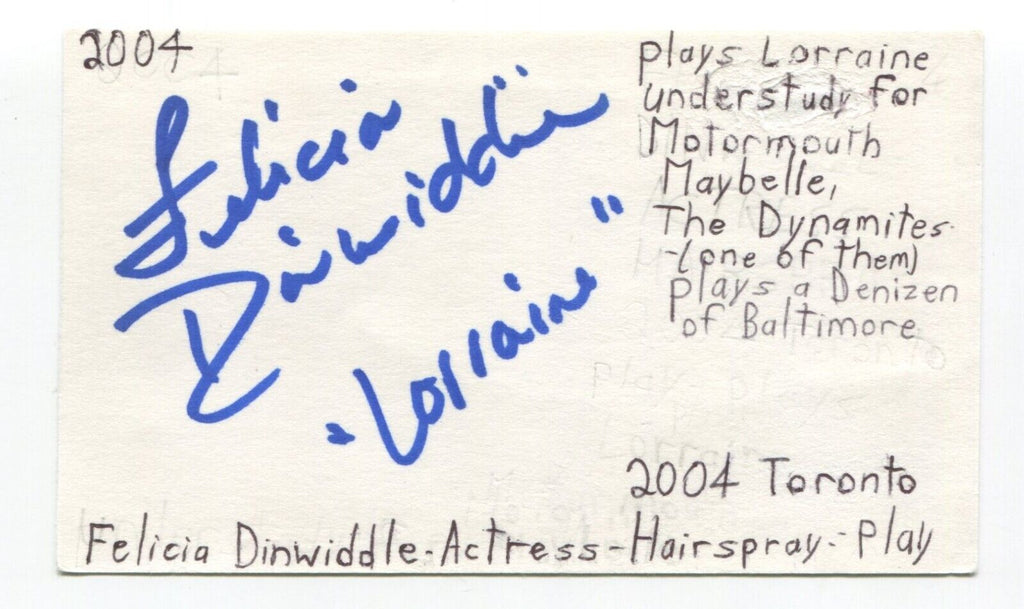 2004
plays Lorraine
understudy for
Motormouth
Maybelle,
The Dynamites
-(one of them)
plays a Denizen
of Baltimore
Felicia
Dinwiddie
"Lorraine"
2004 Toronto
Felicia Dinwiddle-Actress-Hairspray-Play